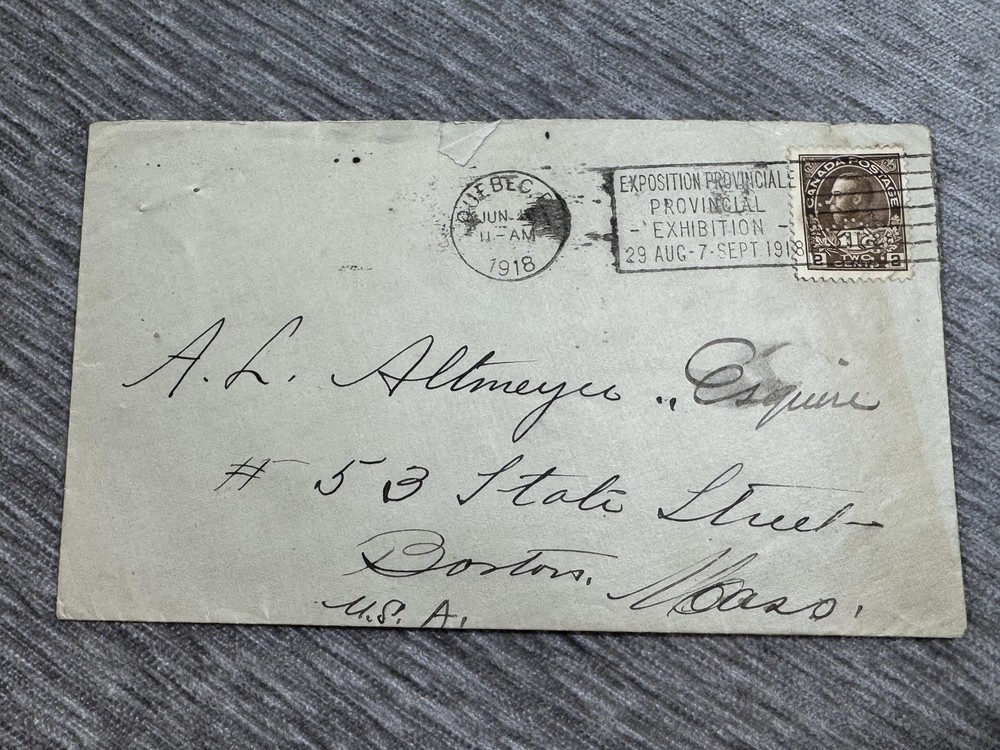 QUEBEC
JUN
11-AM
1918
EXPOSITION PROVINCIALE
PROVINCIAL
- EXHIBITION -
29 AUG-7-SEPT 1918
CANADA POSTAGE
1Tc
2 TWO 2
CENTS
A. L. Altmeyer, Esquire
# 53 State Street
Boston, Mass.
U.S.A.